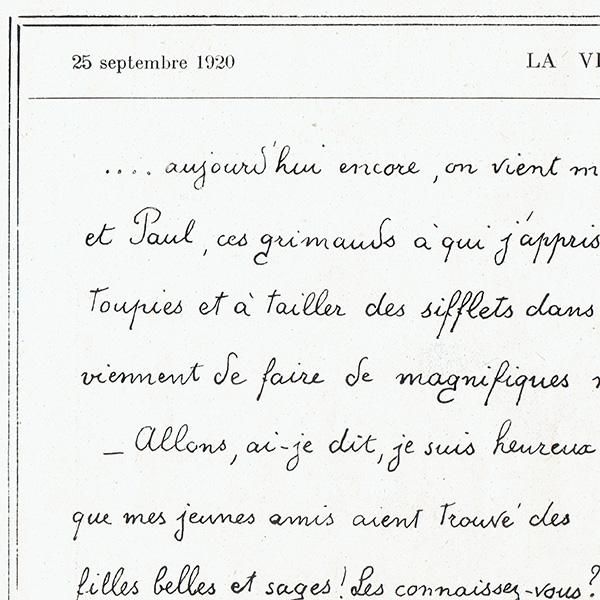 25 septembre 1920 LA VI
.... aujourd'hui encore, on vient m
et Paul, ces grimauds à qui j'appris
toupies et à tailler des sifflets dans
viennent de faire de magnifiques
_ Allons, ai-je dit, je suis heureux
que mes jeunes amis aient trouvé des
filles belles et sages! Les connaissez-vous?